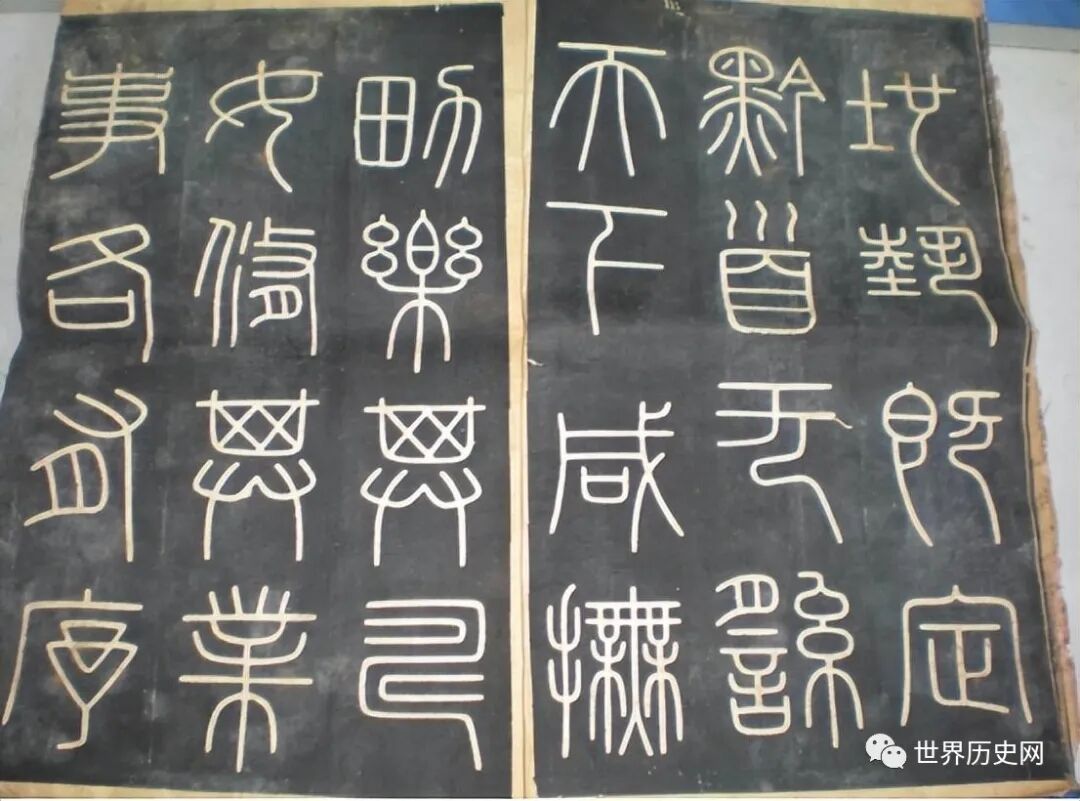 地勢既定
黔首无繇
天下咸撫
男樂其疇
女修其業
事各有序
世界历史网